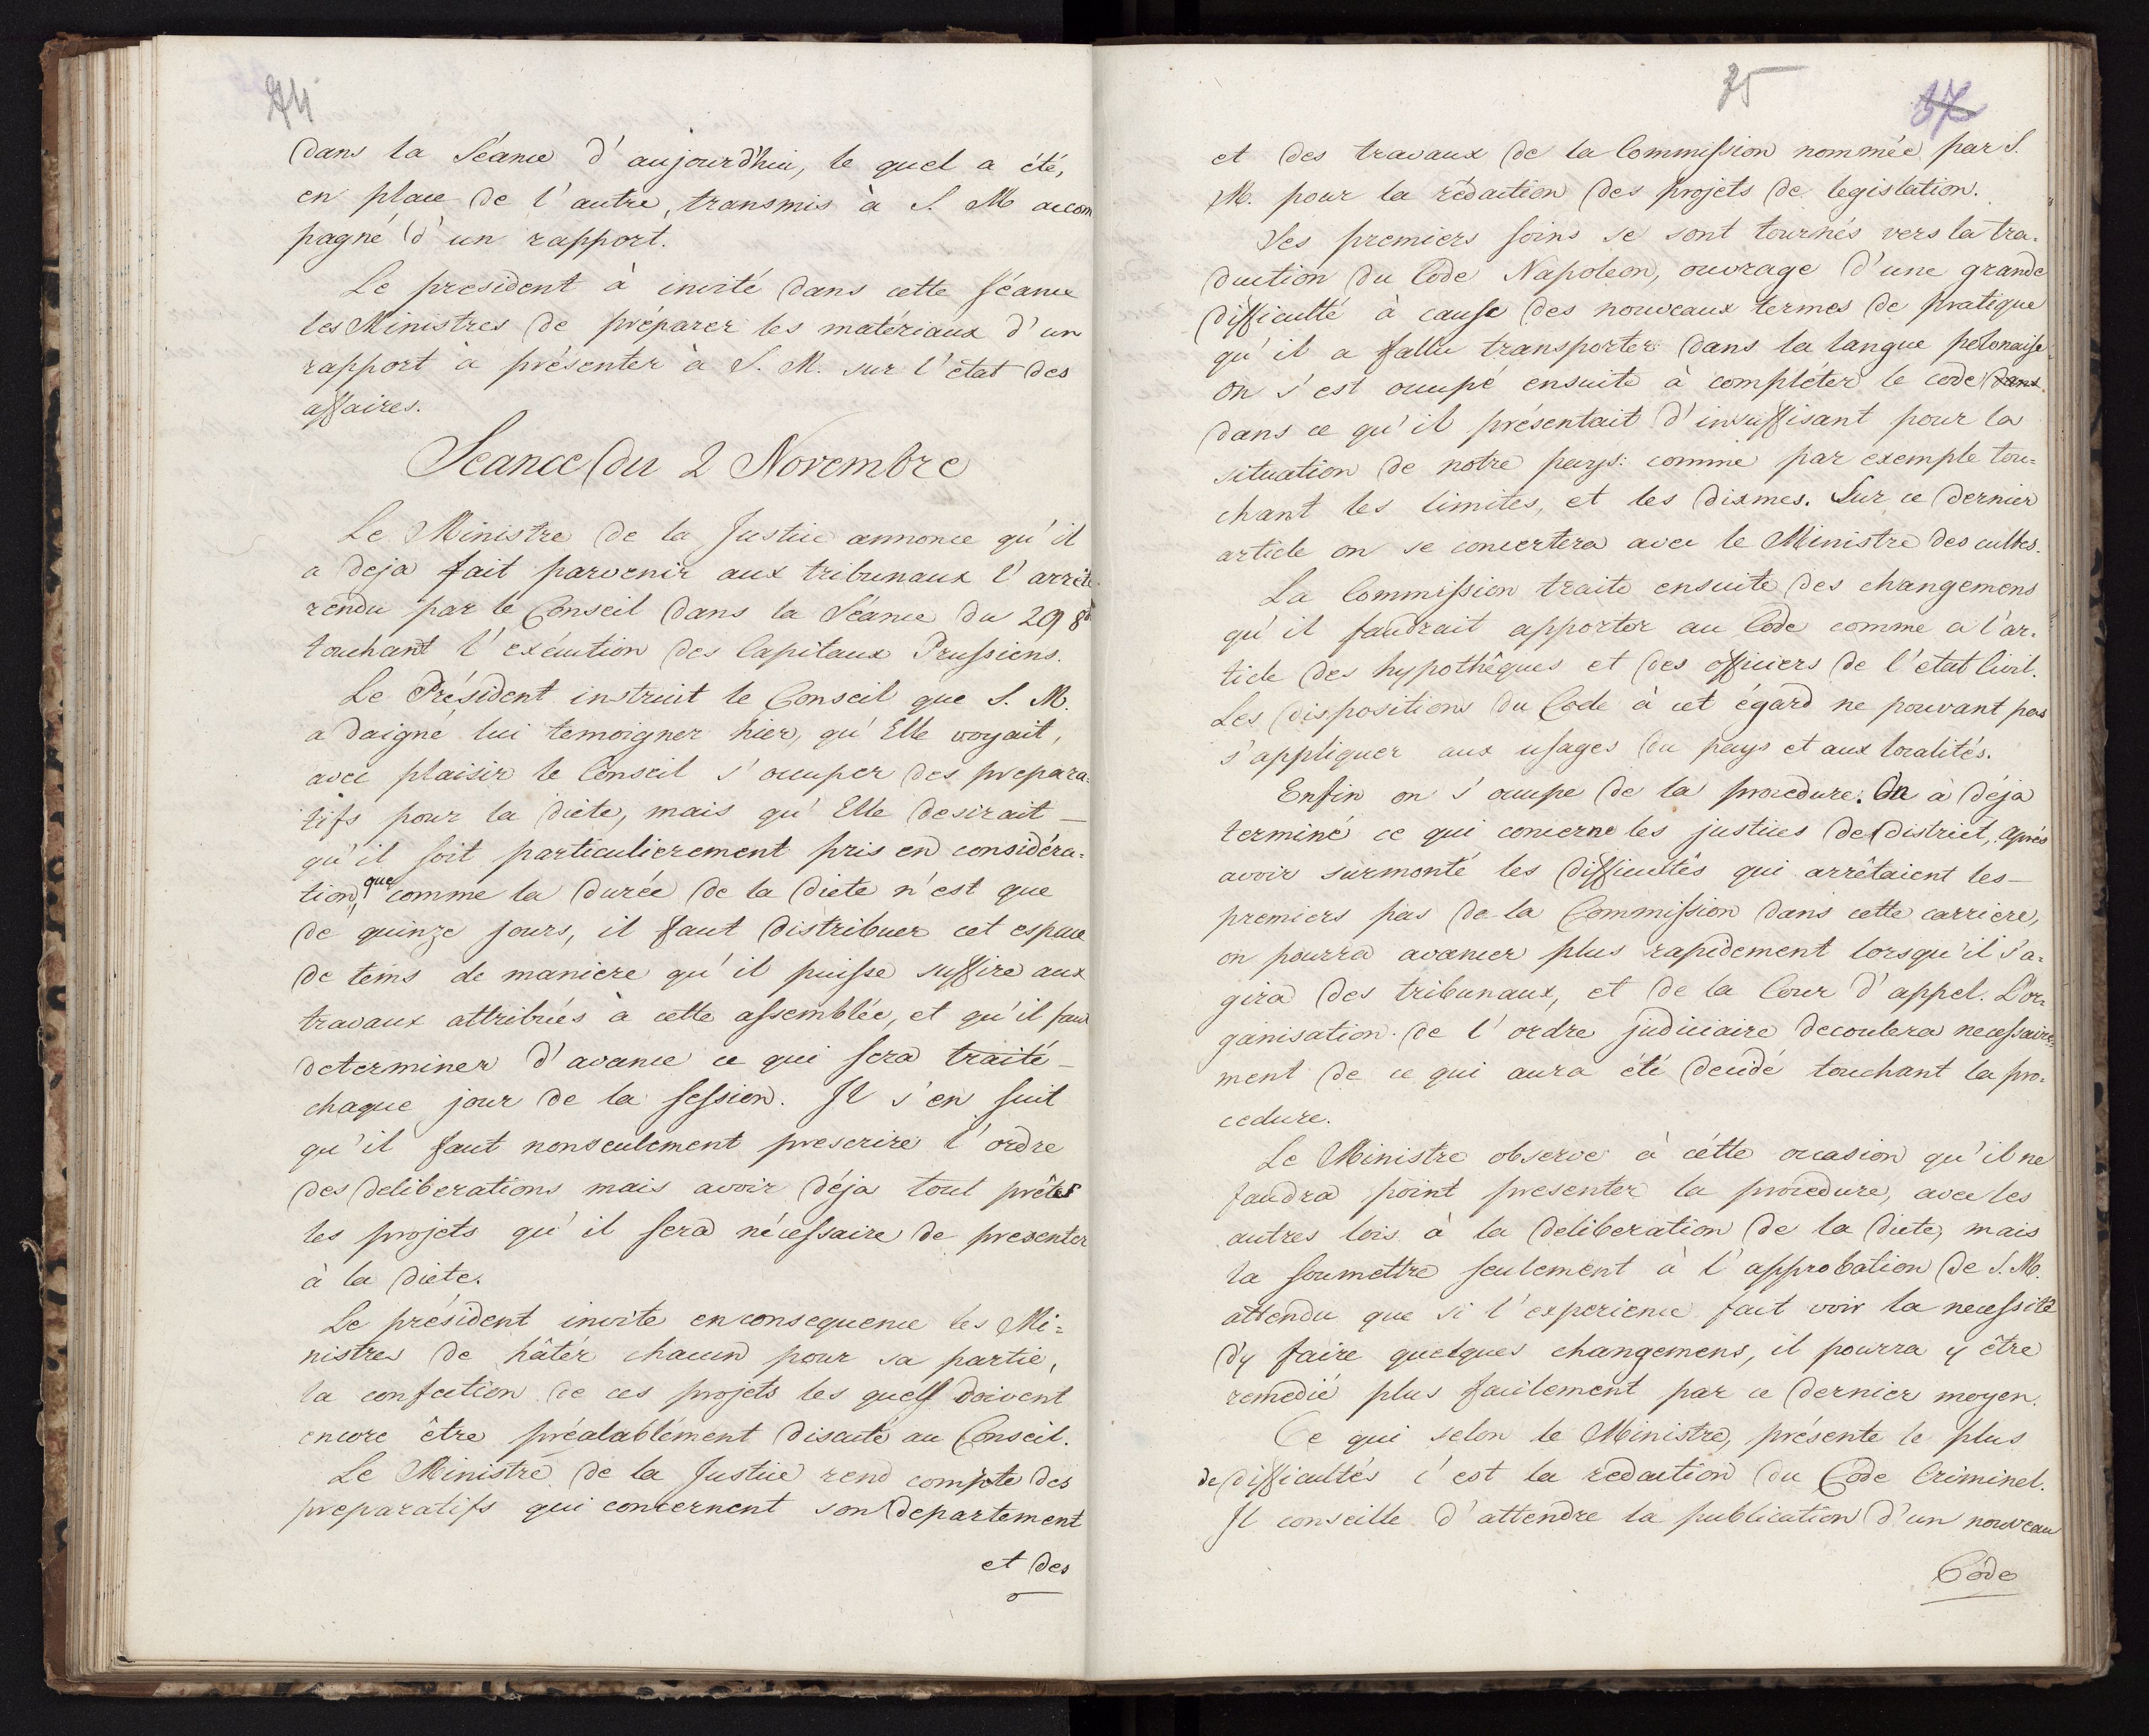 74
dans la Séance d'aujourd'hui, le quel a été,
en place de l'autre, transmis à S. M accom
pagné d'un rapport.
Le president à invité dans cette Séance
les Ministres de préparer les matériaux d'un
rapport à présenter à S. M. sur l'état des
affaires.
Seance du 2 Novembre
Le Ministre de la Justice annonce qu'il
a deja fait parvenir aux tribunaux l'arrêté
rendu par le Conseil dans la Séance du 29 8b
touchant l'exécution des Capitaux Prussiens.
Le Président instruit le Conseil que S. M.
a daigné lui temoigner hier, qu'Elle voyait,
avec plaisir le Conseil s'occuper des prepara=
tifs pour la diète, mais qu'Elle desirait —
qu'il soit particulierement pris en considéra=
tion, que comme la durée de la diete n'est que
de quinze jours, il faut distribuer cet espace
de tems de maniere qu'il puisse suffire aux
travaux attribués à cette assemblée, et qu'il faut
determiner d'avance ce qui sera traité —
chaque jour de la session. Il s'en suit
qu'il faut nonseulement prescrire l'ordre
des deliberations mais avoir déja tout prêts
les projets qu'il sera nécessaire de presenter
à la diète.
Le président invite en consequence les Mi=
nistres de hâter chacun pour sa partie,
la confection de ces projets les quels doivent
encore être préalablement discuté au Conseil.
Le Ministre de la Justice rend compte des
preparatifs qui concernent son departement
et des
75
37
et des travaux de la Commission nommée par S.
M. pour la rédaction des projets de legislation.
Ses premiers soins se sont tournés vers la tra=
duction du Code Napoleon, ouvrage d'une grande
difficulté à cause des nouveaux termes de pratique
qu'il a fallu transporter dans la langue polonaise
on s'est occupé ensuite à completer le code dans
dans ce qu'il présentait d'insuffisant pour la
situation de notre pays: comme par exemple tou=
chant les limites, et les dixmes. Sur ce dernier
article on se concertera avec le Ministre des cultes.
La Commission traite ensuite des changemens
qu'il faudrait apporter au Code comme a l'ar=
ticle des hypothêques et des officiers de l'etat Civil.
Les dispositions du Code à cet égard ne pouvant pas
s'appliquer aux usages du pays et aux localités.
Enfin on s'occupe de la procedure. On à déja
terminé ce qui concerne les justices de district, après
avoir surmonté les difficultés qui arrêtaient les —
premiers pas de la Commission dans cette carriere,
on pourra avancer plus rapidement lorsqu'il s'a=
gira des tribunaux, et de la Cour d'appel. L'or=
ganisation de l'ordre judiciaire decoulera necessaire=
ment de ce qui aura été decidé touchant la pro=
cedure.
Le Ministre observe à cétte occasion qu'il ne
faudra point presenter la procedure, avec les
autres lois à la deliberation de la diete, mais
la soumettre seulement à l'approbation de S. M.
attendu que si l'experience fait voir la necessité
d'y faire quelques changemens, il pourra y être
remedié plus facilement par ce dernier moyen.
Ce qui selon le Ministre, présente le plus
de difficultés c'est la redaction du Code Criminel.
Il conseille d'attendre la publication d'un nouveau
Code